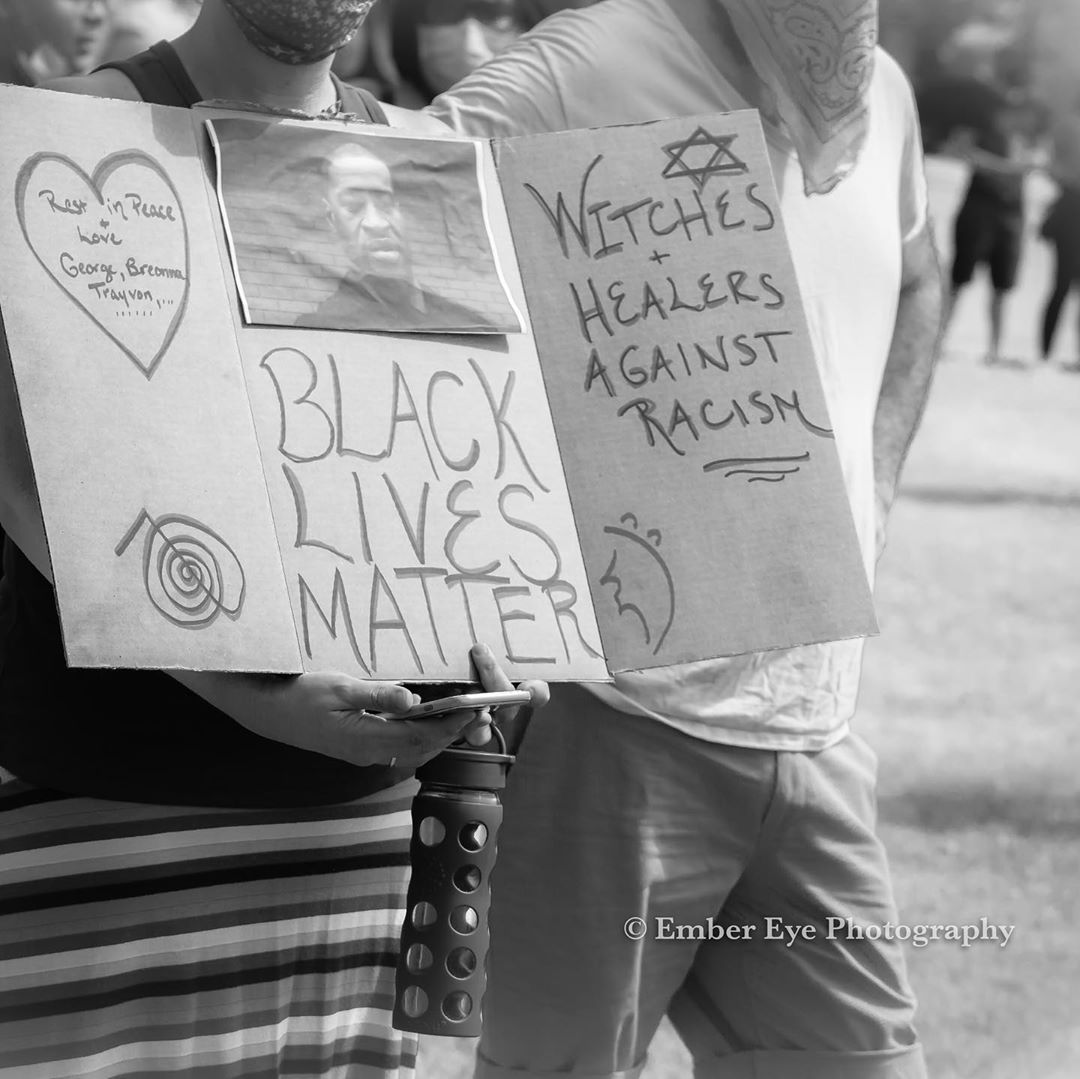 Rest in Peace
+
Love
George, Breonna
Trayvon,...
BLACK
LIVES
MATTER
WITCHES
+
HEALERS
AGAINST
RACISM
© Ember Eye Photography